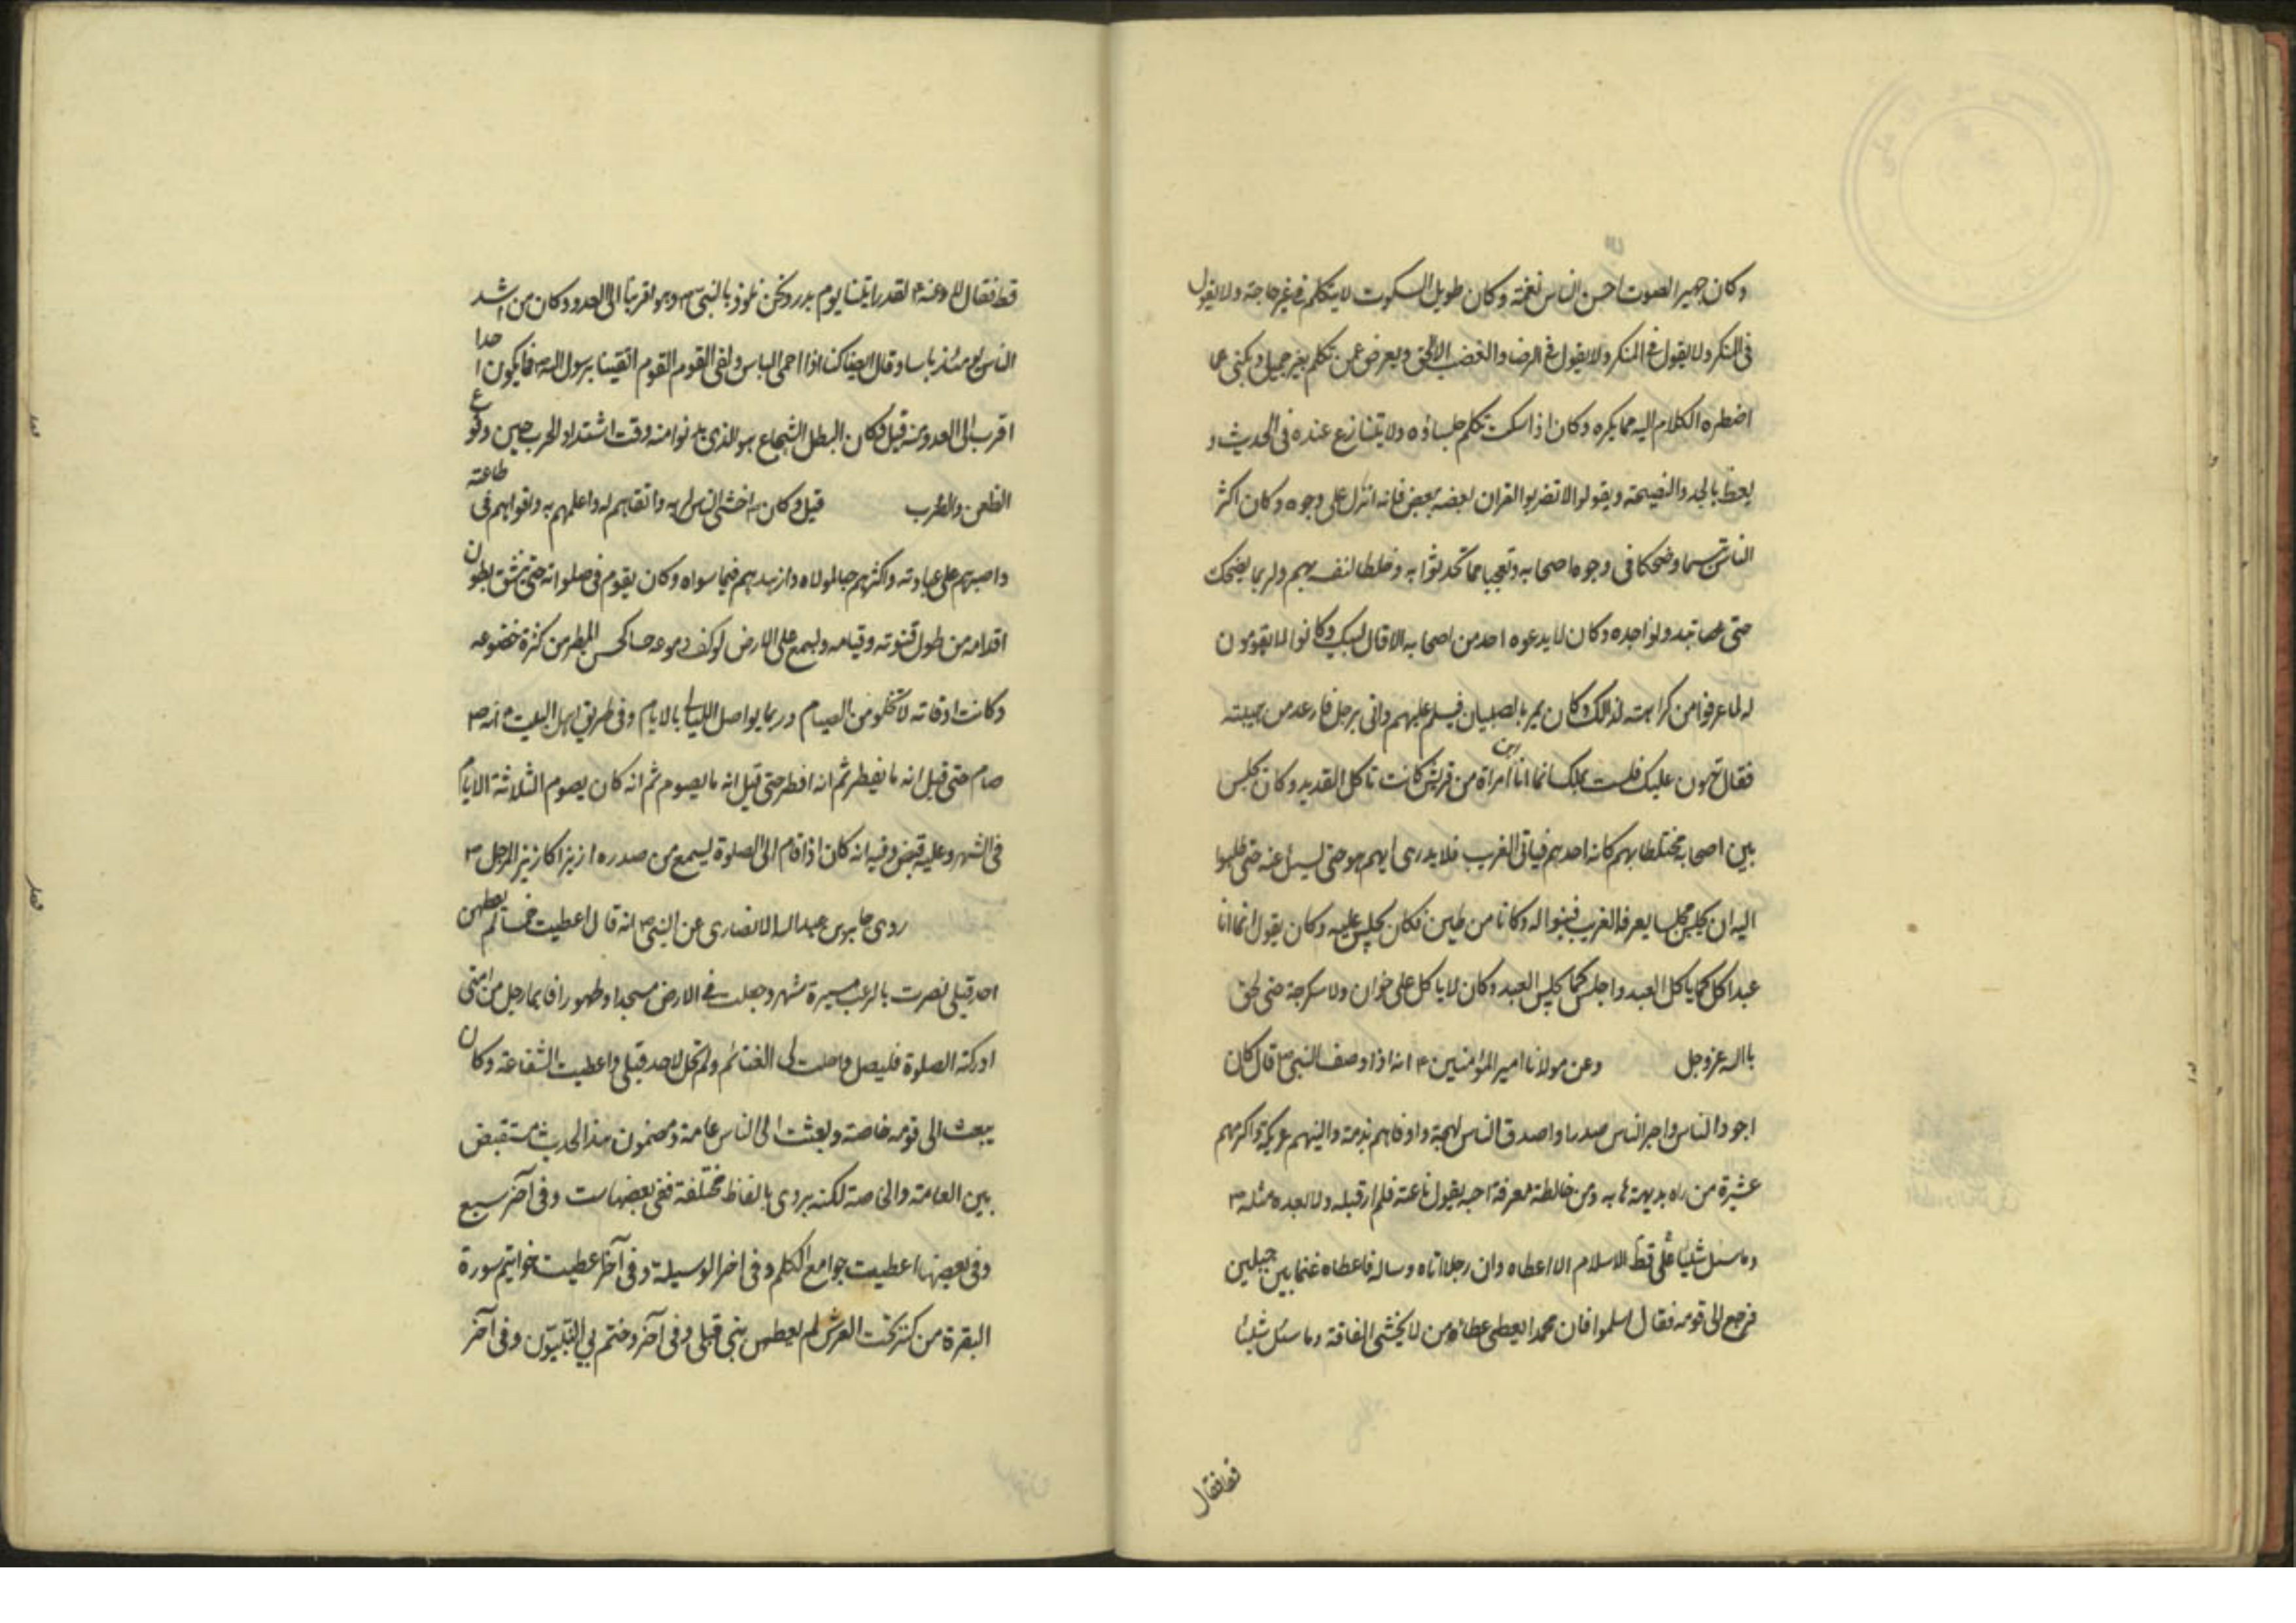 وكان جهير الصوت احسن الناس نغمة وكان طويل السكوت لا يتكلم في غير حاجة ولا يقول
في المنكر ولا يقول في المنكر ولا يقول في الرضا والغضب الا الحق ويعرض عمن تكلم بغير جميل ويكنى عما
اضطره الكلام اليه مما يكره وكان اذا سكت تكلم جلساؤه ولا يتنازع عنده في الحديث و
يعظ بالجد والنصيحة ويقول لا تضربوا القران بعضه ببعض فانه انزل على وجوه وكان اكثر
الناس تبسما وضحكا في وجوه اصحابه وتعجبا مما تحدثوا به وخلطا لنفسه بهم ولربما يضحك
حتى تبدو نواجده وكان لا يدعوه احد من اصحابه الا قال لبيك وكانوا لا يقومون
له لما عرفوا من كراهته لذلك وكان يمر بالصبيان فيسلم عليهم واتى برجل فارعد من هيبته
فقال هون عليك فلست بملك انما انا ابن امراة من قريش كانت تاكل القديد وكان يجلس
بين اصحابه مختلطا بهم كانه احدهم فياتى الغريب فلا يدرى ايهم هو حتى يسئل عنه حتى طلبوا
اليه ان يجلس مجلسا يعرفه الغريب فبنوا له دكانا من طين فكان يجلس عليه وكان يقول انما انا
عبد اكل كما ياكل العبد واجلس كما يجلس العبد وكان لا ياكل على خوان ولا سكرجة حتى لحق
بالله عز وجل وعن مولانا امير المؤمنين ع انه اذا وصف النبي ص قال كان
اجود الناس واجرا الناس صدرا واصدق الناس لهجة واوفاهم بذمة والينهم عريكة واكرمهم
عشيرة من راه بديهة هابه ومن خالطه معرفة احبه يقول ناعته فلم ار قبله ولا بعده مثله ص
وما سئل شيئا على قط الاسلام الا اعطاه وان رجلا اتاه وساله فاعطاه غنما بين جبلين
فرجع الى قومه فقال اسلموا فان محمدا يعطى عطاء من لا يخشى الفاقة وما سئل شيئا
قط فقال
قط فقال لا وعنه ع لقد رايتنا يوم بدر ونحن نلوذ بالنبي ص وهو اقربنا الى العدو وكان من اشد
الناس يومئذ باسا وقال ايضا كنا اذا احمى الباس ولقى القوم القوم اتقينا برسول الله ص فما يكون احدا
اقرب الى العدو منه قيل فكان البطل الشجاع هو الذى يدنوا منه وقت اشتداد الحرب حين وقوع
الطعن والضرب قيل وكان ص اخشى الناس لربه واتقاهم له واعلمهم به واقواهم في طاعته
واصبرهم على عبادته واكثرهم حبا لمولاه وازهدهم فيما سواه وكان يقوم في صلواته حتى تنشق بطون
اقدامه من طول قنوته وقيامه ويسمع على الارض لوكف دموعه حسا كحس المطر من كثرة خضوعه
وكانت اوقاته لا تخلو من الصيام وربما يواصل الليالى بالايام وفي طريق اهل البيت ع انه ص
صام حتى قيل انه ما يفطر ثم انه افطر حتى قيل انه ما يصوم ثم انه كان يصوم الثلاثة الايام
في الشهر وعليه قبض وفيه انه كان اذا قام الى الصلوة يسمع من صدره ازيزا كازيز المرجل ص
روى جابر بن عبد الله الانصارى عن النبي ص انه قال اعطيت خمسا لم يعطهن
احد قبلى نصرت بالرعب مسيرة شهر وجعلت لى الارض مسجدا وطهورا فايما رجل من امتى
ادركته الصلوة فليصل واحلت لى الغنائم ولم تحل لاحد قبلى واعطيت الشفاعة وكان
يبعث الى قومه خاصة وبعثت الى الناس عامة ومضمون هذا الحديث مستفيض
بين العامة والخاصة لكنه يروى بالفاظ مختلفة ففي بعضها ست وفي آخر سبع
وفي بعضها اعطيت جوامع الكلم وفي اخر الوسيلة وفي آخر اعطيت خواتيم سورة
البقرة من كنز تحت العرش لم يعطهن نبي قبلى وفي آخر وختم بي النبيون وفي آخر